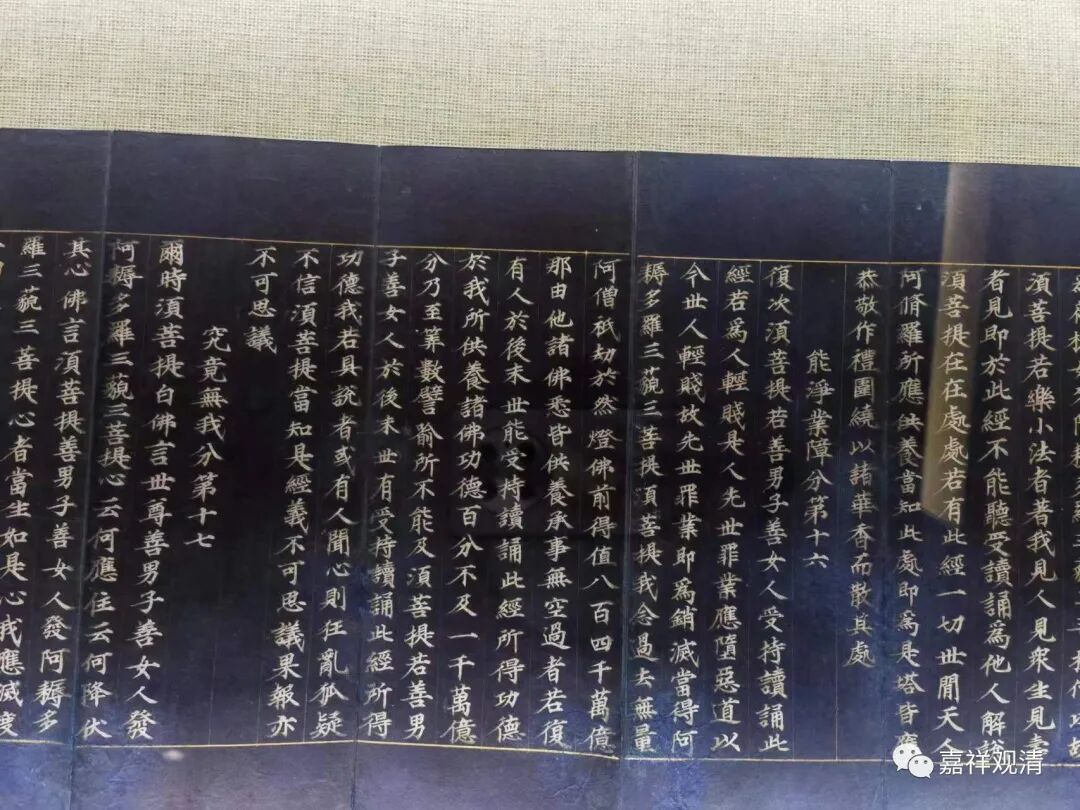 須菩提若樂小法者著我見人見衆生見壽
者見即於此經不能聽受讀誦爲他人解説
須菩提在在處處若有此經一切世間天人
阿脩羅所應供養當知此處即爲是塔皆應
恭敬作禮圍繞以諸華香而散其處
能淨業障分第十六
復次須菩提若善男子善女人受持讀誦此
經若爲人輕賤是人先世罪業應墮惡道以
今世人輕賤故先世罪業即爲銷滅當得阿
耨多羅三藐三菩提須菩提我念過去無量
阿僧祇劫於然燈佛前得值八百四千萬億
那由他諸佛悉皆供養承事無空過者若復
有人於後末世能受持讀誦此經所得功德
於我所供養諸佛功德百分不及一千萬億
分乃至筭數譬喻所不能及須菩提若善男
子善女人於後末世有受持讀誦此經所得
功德我若具説者或有人聞心則狂亂狐疑
不信須菩提當知是經義不可思議果報亦
不可思議
究竟無我分第十七
爾時須菩提白佛言世尊善男子善女人發
阿耨多羅三藐三菩提心云何應住云何降伏
其心佛言須菩提善男子善女人發阿耨多
羅三藐三菩提心者當生如是心我應滅度
嘉祥观清